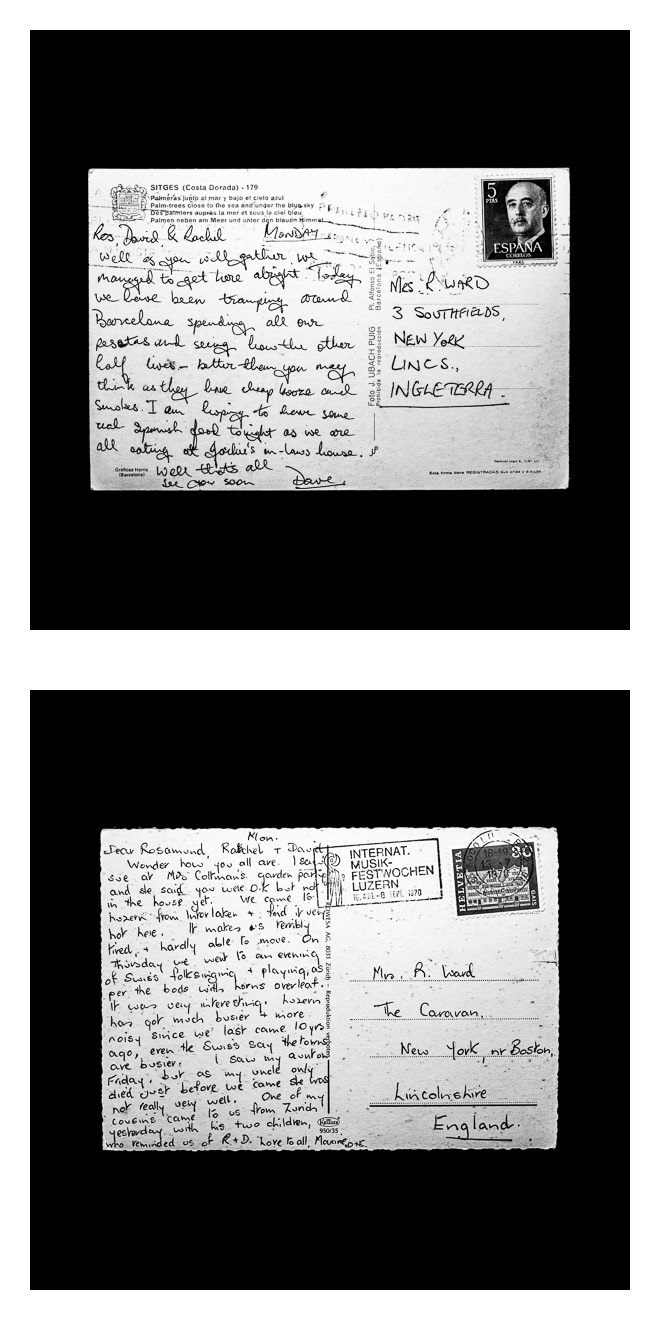 SITGES (Costa Dorada) - 179
Palmeras junto al mar y bajo el cielo azul
Palm-trees close to the sea and under the blue sky
Des palmiers aupres la mer et sous le ciel bleu
Palmen neben am Meer und unter den blauen Himmel
Ros, David & Rachel MONDAY
Well as you will gather we
managed to get here alright. Today
we have been tramping around
Barcelona spending all our
pesetas and seeing how the other
half lives - better than you may
think as they have cheap booze and
smokes. I am hoping to have some
real Spanish food tonight as we are
all eating at Jackie's in-laws house.
Well that's all
see you soon Dave.
Gráficas Harris
(Barcelona)
Pl. Alfonso El Sabio,
Barcelona (España)
Foto J. UBACH PUIG
Prohibida la reproducción
5
PTAS
ESPAÑA
CORREOS
MRS. R. WARD
3 SOUTHFIELDS,
NEW YORK
LINCS.,
INGLETERRA.
Mon.
Dear Rosamund, Ratchel + David
Wonder how you all are. I saw
sue at Mrs Coltman's garden party
and she said you were O.K but not
in the house yet. We came to
luzern from Interlaken + find it very
hot here. It makes us terribly
tired, + hardly able to move. On
Thursday we went to an evening
of Swiss folksinging + playing, as
per the bods with horns overleaf.
It was very interesting. luzern
has got much busier + more
noisy since we last came 10 yrs
ago, even the Swiss say the towns
are busier. I saw my aunt on
Friday, but as my uncle only
died just before we came she was
not really very well. One of my
cousins came to us from Zurich
yesterday with his two children,
who reminded us of R + D. Love to all, Maxine, D+E.
8031 Zürich - Reproduktion verboten
Kettus
950/35
INTERNAT.
MUSIK-
FESTWOCHEN
LUZERN
1970
HELVETIA
1970
Mrs. R. Ward
The Caravan,
New York, nr Boston,
Lincolnshire
England.